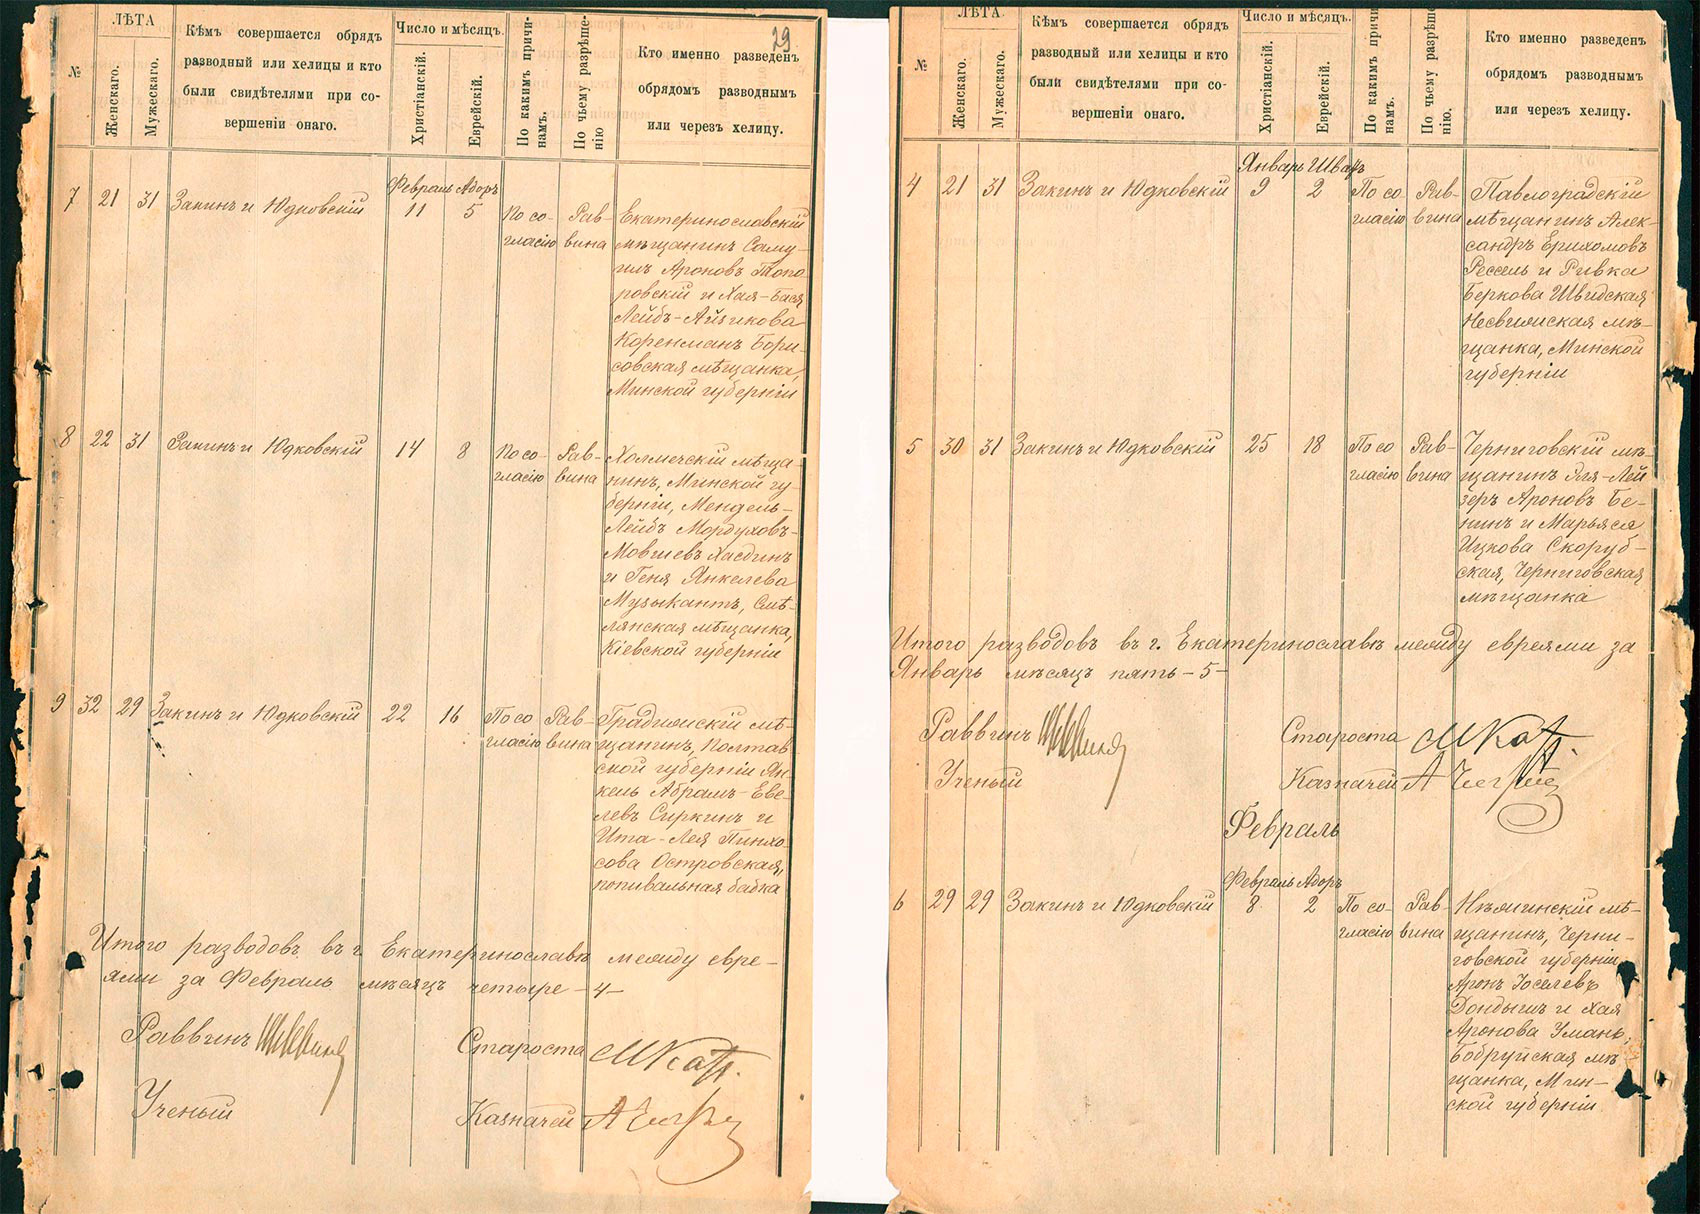 29
№
ЛѢТА
Женскаго.
Мужескаго.
Кѣмъ совершается обрядъ
разводный или хелицы и кто
были свидѣтелями при со-
вершеніи онаго.
Число и мѣсяцъ.
Христіанскій.
Еврейскій.
По какимъ причи-
намъ.
По чьему разрѣше-
нію
Кто именно разведенъ
обрядомъ разводнымъ
или черезъ хелицу.
Февраль Адоръ
7 21 31 Закинъ и Юдковскій 11 5 По со- Рав- Екатеринославскій
гласію вина мѣщанинъ Саму-
илъ Ароновъ Топо-
ровскій и Хая-Бася
Лейбъ-Айзикова
Коренманъ Бори-
совская мѣщанка,
Минской губерніи
8 22 31 Закинъ и Юдковскій 14 8 По со- Рав- Холмечскій мѣща-
гласію вина нинъ, Минской гу-
берніи, Мендель-
Лейбъ Мордуховъ-
Мовшевъ Хасдинъ
и Геня Янкелева
Музыкантъ, Смѣ-
лянская мѣщанка,
Кіевской губерніи
9 32 29 Закинъ и Юдковскій 22 16 По со Рав- Градижскій мѣ-
гласію вина щанинъ, Полтав
ской губерніи Ян-
кель Абрамъ-Еве-
левъ Сиркинъ и
Ита-Лея Пинхо-
сова Островская,
повивальная бабка
Итого разводовъ въ г. Екатеринославѣ между евре-
ями за Февраль мѣсяцъ четыре -4-
Раввинъ Староста
Ученый Казначей
№
ЛѢТА
Женскаго.
Мужескаго.
Кѣмъ совершается обрядъ
разводный или хелицы и кто
были свидѣтелями при со-
вершеніи онаго.
Число и мѣсяцъ.
Христіанскій.
Еврейскій.
По какимъ причи-
намъ.
По чьему разрѣше-
нію.
Кто именно разведенъ
обрядомъ разводнымъ
или черезъ хелицу.
Январь Шватъ
4 21 31 Закинъ и Юдковскій 9 2 По со- Рав- Павлоградскій
гласію вина мѣщанинъ Алек-
сандръ Ерихомовъ
Рессель и Ривка
Беркова Швидская
Несвижская мѣ-
щанка, Минской
губерніи
5 30 31 Закинъ и Юдковскій 25 18 По со Рав- Черниговскій мѣ-
гласію вина щанинъ Эля-Лей
зеръ Ароновъ Бе-
нинъ и Марьяся
Ицкова Скоруб-
ская, Черниговская
мѣщанка
Итого разводовъ въ г. Екатеринославѣ между евреями за
Январь мѣсяцъ пять -5-
Раввинъ Староста
Ученый Казначей
Февраль
Февраль Адоръ
6 29 29 Закинъ и Юдковскій 8 2 По со- Рав- Нѣжинскій мѣ-
гласію вина щанинъ, Черни-
говской губерніи,
Аронъ Іоселевъ
Дондышъ и Хая
Аронова Умань,
Бобруйская мѣ-
щанка, Мин-
ской губерніи